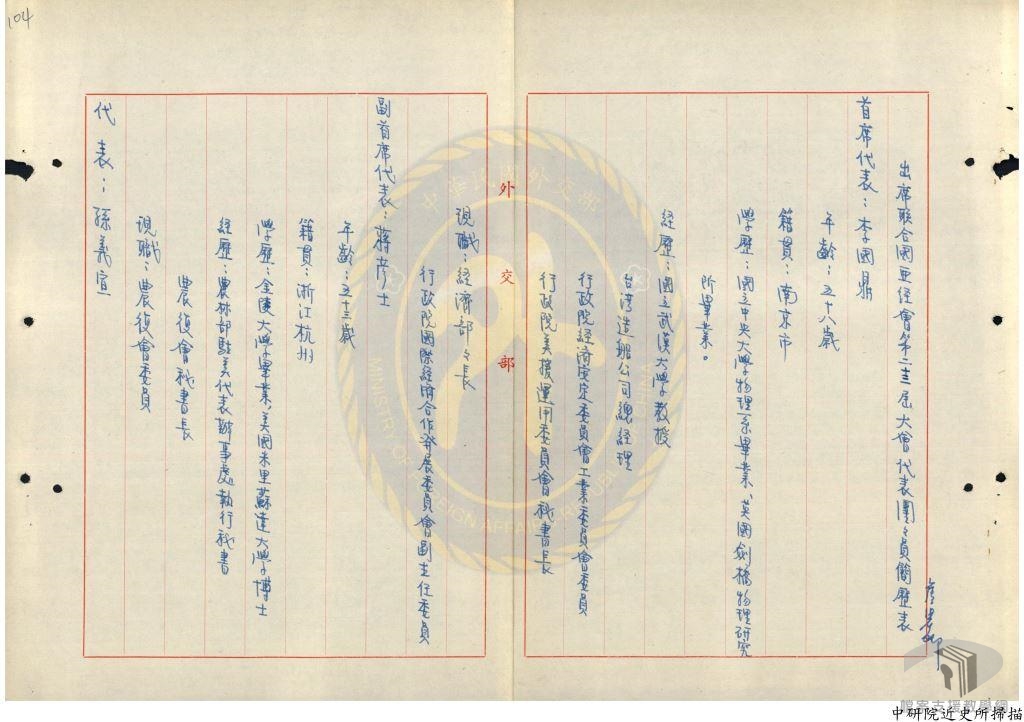 104
出席聯合國亞經會第二十三屆大會代表團々員簡歷表
首席代表：李國鼎
年齡：五十八歲
籍貫：南京市
學歷：國立中央大學物理系畢業、英國劍橋物理研究
所畢業。
經歷：國立武漢大學教授
台灣造船公司總經理
行政院經濟安定委員會工業委員會委員
行政院美援運用委員會秘書長
外交部
現職：經濟部々長
行政院國際經濟合作發展委員會副主任委員
副首席代表：蔣彥士
年齡：五十三歲
籍貫：浙江杭州
學歷：金陵大學畢業、美國米里蘇達大學博士
經歷：農林部駐美代表辦事處執行秘書
農復會秘書長
現職：農復會委員
代表：孫義宣
中華民國外交部
MINISTRY OF FOREIGN AFFAIRS REPUBLIC
檔案支援教學網
中研院近史所掃描